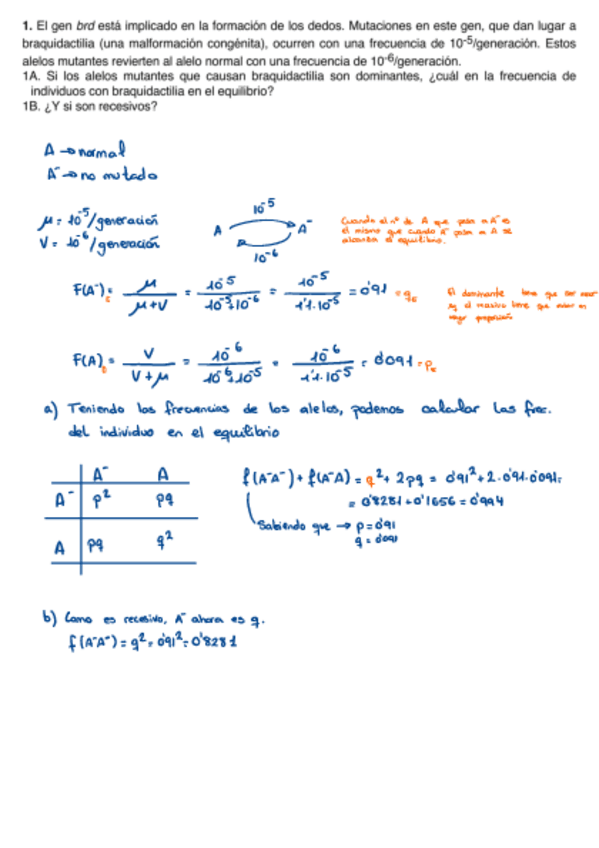 1. El gen brd está implicado en la formación de los dedos. Mutaciones en este gen, que dan lugar a
braquidactilia (una malformación congénita), ocurren con una frecuencia de 10⁻⁵/generación. Estos
alelos mutantes revierten al alelo normal con una frecuencia de 10⁻⁶/generación.
1A. Si los alelos mutantes que causan braquidactilia son dominantes, ¿cuál en la frecuencia de
individuos con braquidactilia en el equilibrio?
1B. ¿Y si son recesivos?
A → normal
A⁻ → no mutado
μ = 10⁻⁵/generación
V = 10⁻⁶/generación
10⁻⁵
A A⁻
10⁻⁶
Cuando el nº de A que pasa a A⁻ es
el mismo que cuando A⁻ pasa a A se
alcanza el equilibrio.
F(A⁻) = μ / μ+V = 10⁻⁵ / 10⁻⁵+10⁻⁶ = 10⁻⁵ / 1'1·10⁻⁵ = 0'91 = q
El dominante tiene que ser
el tiene que estar en
mayor proporción
F(A) = V / V+μ = 10⁻⁶ / 10⁻⁶+10⁻⁵ = 10⁻⁶ / 1'1·10⁻⁵ = 0'091 = p
a) Teniendo las frecuencias de los alelos, podemos calcular las frec.
del individuo en el equilibrio
A⁻ A
A⁻ p² pq
A pq q²
f(A⁻A⁻) + f(A⁻A) = q² + 2pq = 0'91² + 2·0'91·0'091 =
= 0'8281 + 0'1656 = 0'994
Sabiendo que → p = 0'91
q = 0'091
b) Como es recesivo, A⁻ ahora es q.
f(A⁻A⁻) = q² = 0'91² = 0'8281